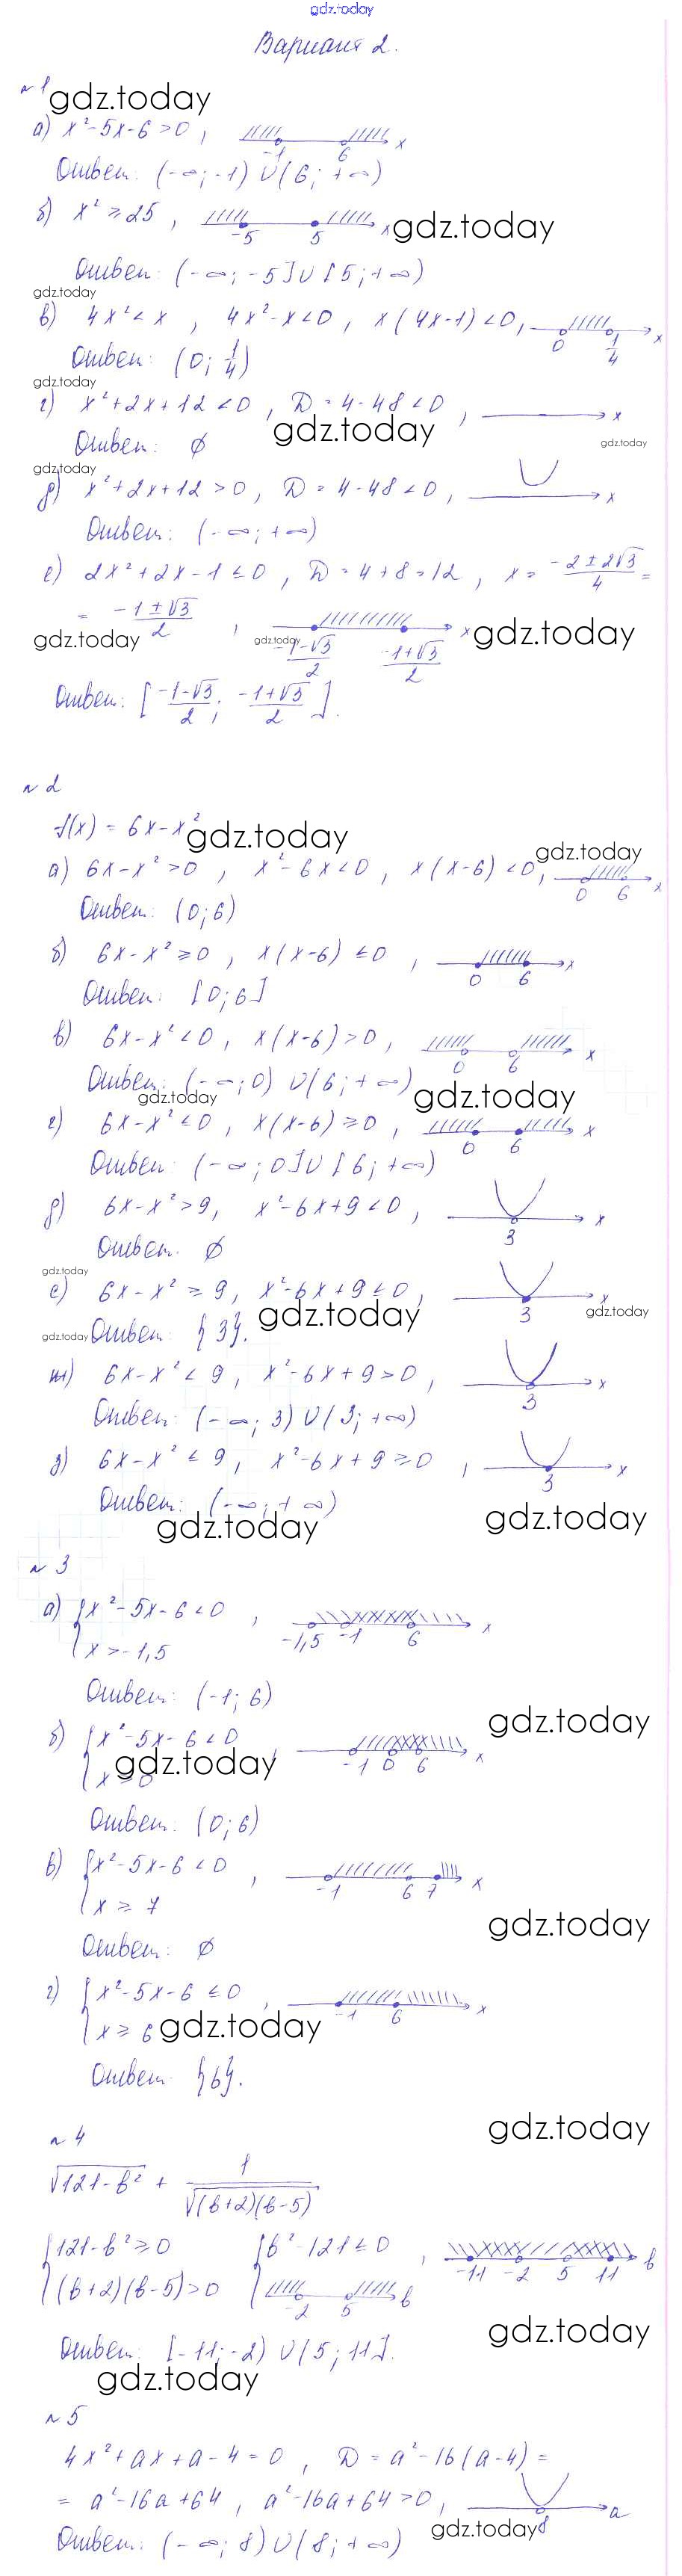 gdz.today
Вариант 2.
№1 gdz.today
а) x²-5x-6>0, -1 6 x
Ответ: (-∞;-1)∪(6;+∞)
б) x²≥25, -5 5 x gdz.today
Ответ: (-∞;-5]∪[5;+∞)
gdz.today
в) 4x²<x, 4x²-x<0, x(4x-1)<0, 0 1/4 x
Ответ: (0; 1/4)
gdz.today
г) x²+2x+12<0, D=4-48<0, x
Ответ: ∅ gdz.today gdz.today
gdz.today
д) x²+2x+12>0, D=4-48<0, x
Ответ: (-∞;+∞)
е) 2x²+2x-1≤0, D=4+8=12, x=(-2±2√3)/4=
= (-1±√3)/2, (-1-√3)/2 (-1+√3)/2 x
gdz.today gdz.today gdz.today
Ответ: [(-1-√3)/2; (-1+√3)/2].
№2
f(x)=6x-x² gdz.today
gdz.today
а) 6x-x²>0, x²-6x<0, x(x-6)<0, 0 6 x
Ответ: (0;6)
б) 6x-x²≥0, x(x-6)≤0, 0 6 x
Ответ: [0;6]
в) 6x-x²<0, x(x-6)>0, 0 6 x
Ответ: (-∞;0)∪(6;+∞)
gdz.today gdz.today
г) 6x-x²≤0, x(x-6)≥0, 0 6 x
Ответ: (-∞;0]∪[6;+∞)
д) 6x-x²>9, x²-6x+9<0, 3 x
Ответ. ∅
gdz.today
е) 6x-x²≥9, x²-6x+9≤0, 3 x
gdz.today gdz.today
gdz.today Ответ: {3}.
ж) 6x-x²<9, x²-6x+9>0, 3 x
Ответ: (-∞;3)∪(3;+∞)
з) 6x-x²≤9, x²-6x+9≥0, 3 x
Ответ: (-∞;+∞)
gdz.today gdz.today
№3
а) {x²-5x-6<0, -1,5 -1 6 x
x>-1,5
Ответ: (-1;6)
gdz.today
б) {x²-5x-6<0 -1 0 6 x
x>0 gdz.today
Ответ: (0;6)
в) {x²-5x-6<0, -1 6 7 x
x≥7
gdz.today
Ответ: ∅
г) {x²-5x-6≤0, -1 6 x
x≥6 gdz.today
Ответ {6}.
gdz.today
№4
√(121-b²) + 1/√((b+2)(b-5))
{121-b²≥0 {b²-121≤0, -11 -2 5 11 b
(b+2)(b-5)>0 -2 5 b
gdz.today
Ответ: [-11;-2)∪(5;11].
gdz.today
№5
4x²+ax+a-4=0, D=a²-16(a-4)=
= a²-16a+64, a²-16a+64>0, 8 a
gdz.today
Ответ: (-∞;8)∪(8;+∞)